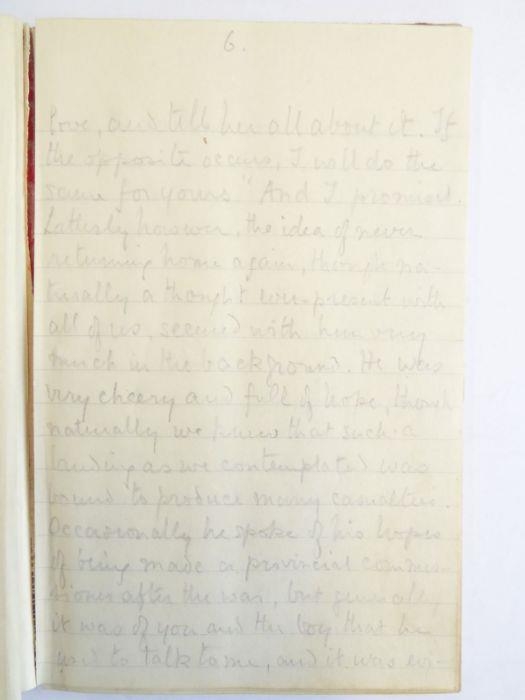 6.
love, and tell her all about it. If
the opposite occurs, I will do the
same for yours." And I promised.
Latterly however, the idea of never
returning home again, though na-
turally a thought ever-present with
all of us, seemed with him very
much in the background. He was
very cheery and full of hope, though
naturally we knew that such a
landing as we contemplated was
bound to produce many casualties.
Occasionally he spoke of his hopes
of being made a provincial commis-
sioner after the war, but generally
it was of you and the boy that he
used to talk to me, and it was evi-